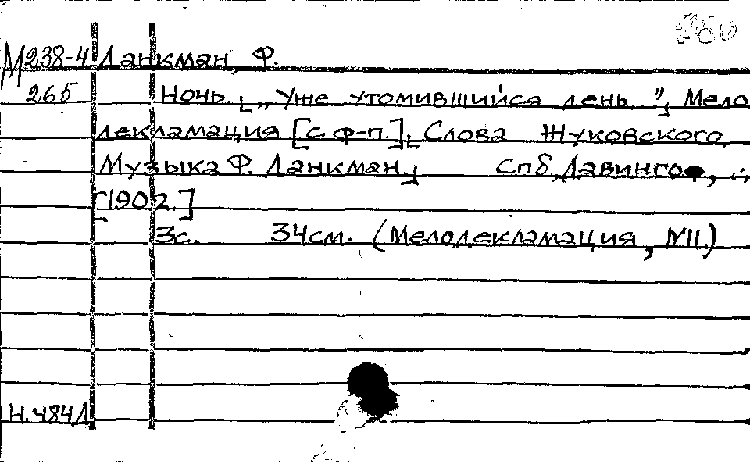 М238-4 Ланкман, Ф.
265 Ночь. [„Уже утомившийся день"], Мело
декламация [с ф-п.]. Слова Жуковского.
Музыка Ф. Ланкман. Спб, Давингоф,
[1902.]
3с. 34см. (Мелодекламация, №11.)
Н.484Л